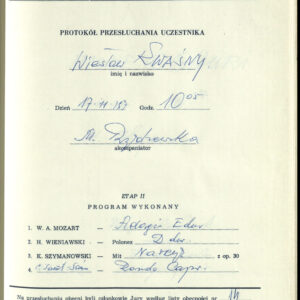 PROTOKÓŁ PRZESŁUCHANIA UCZESTNIKA
Wiesław KWAŚNY
imię i nazwisko
Dzień 17-11 1957 Godz. 10 05
M.
akompaniator
ETAP II
PROGRAM WYKONANY
1. W. A. MOZART — Adagio E dur
2. H. WIENIAWSKI — Polonez D dur
3. K. SZYMANOWSKI — Mit Narcyz z op. 30
4. Rondo Capr.
Na przesłuchaniu obecni byli członkowie Jury według listy obecności nr